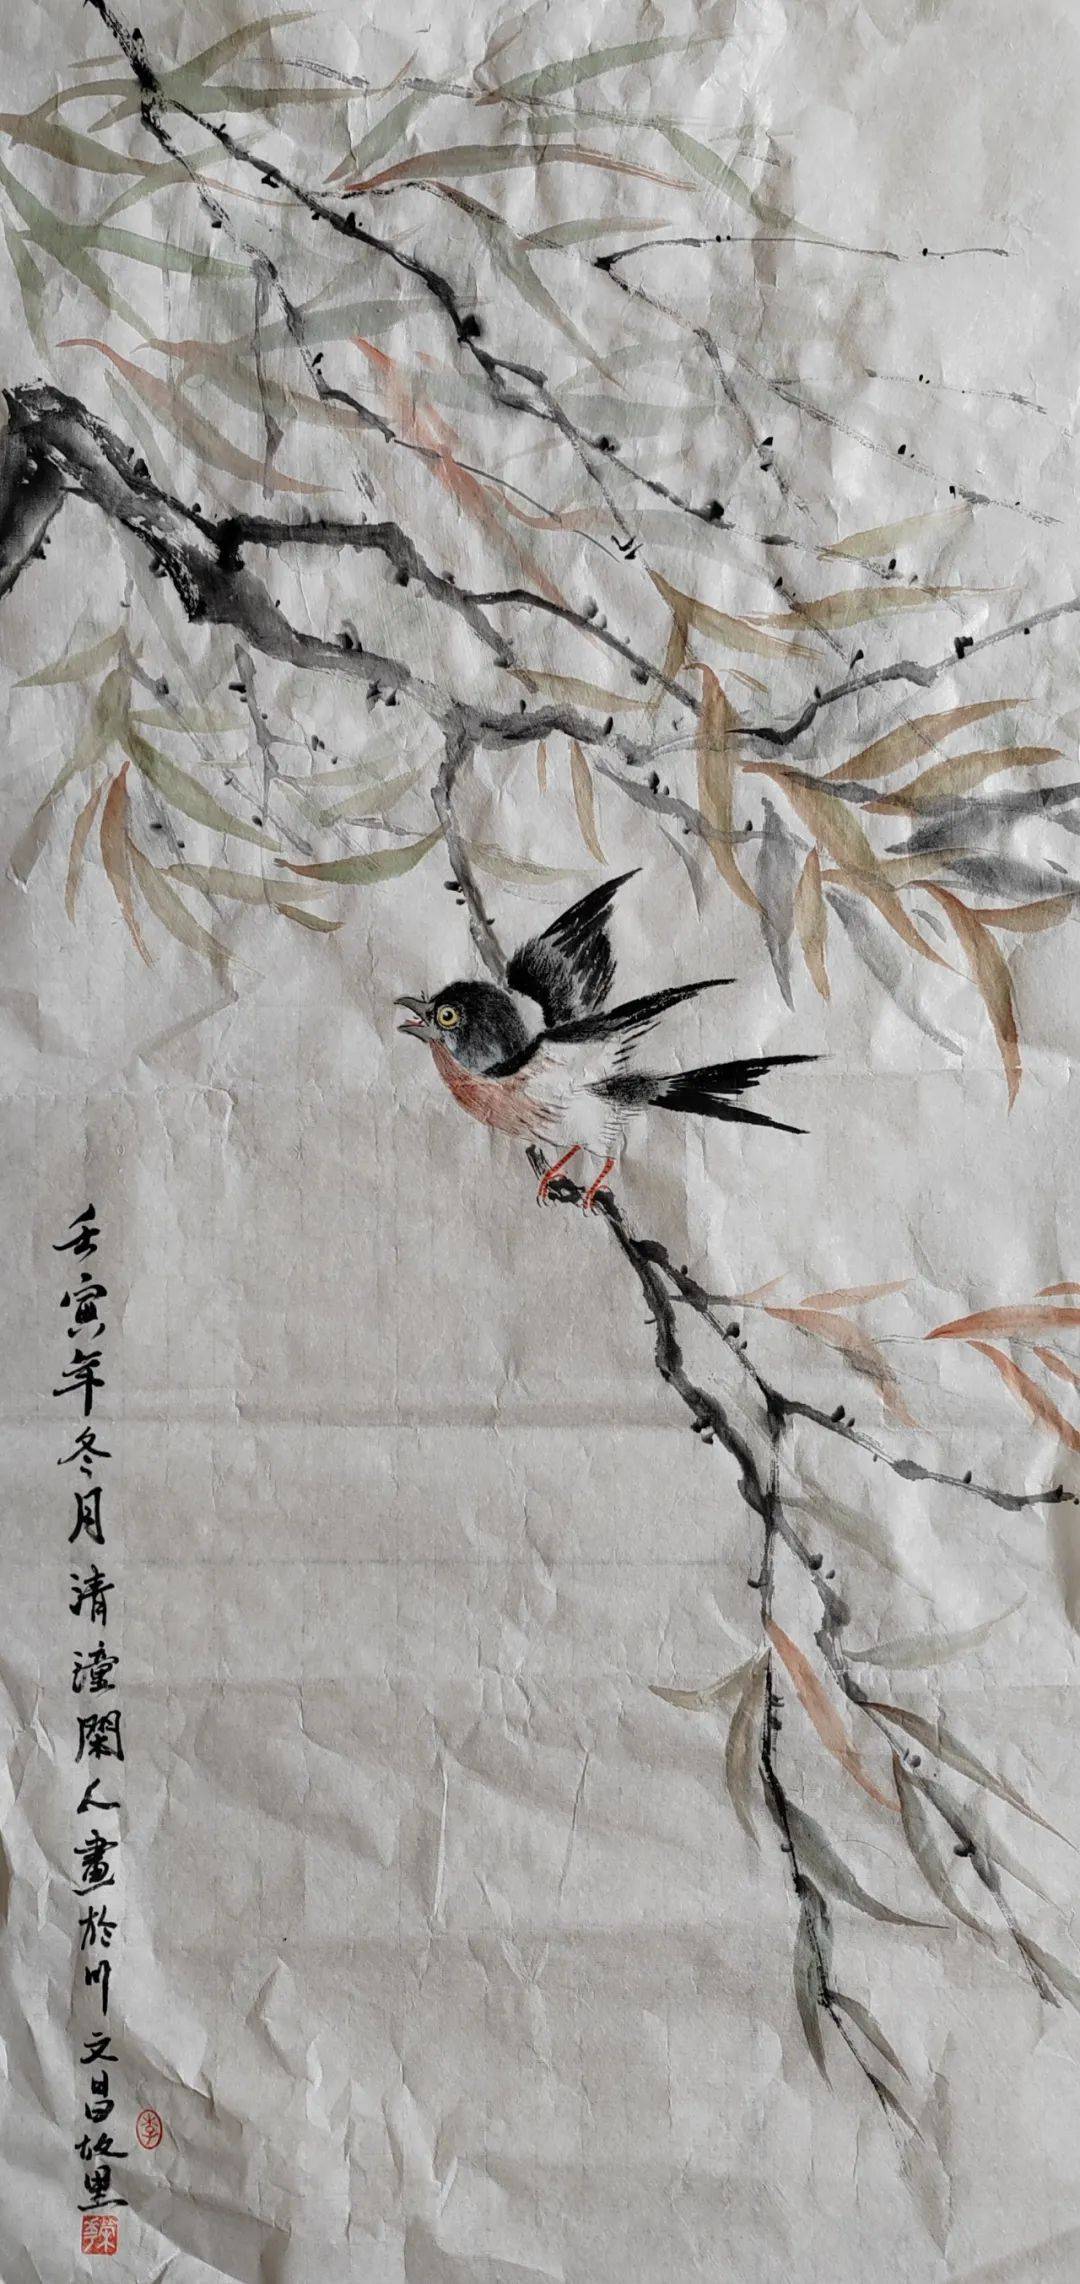 壬寅年冬月清潼閑人畫於川文昌故里
李